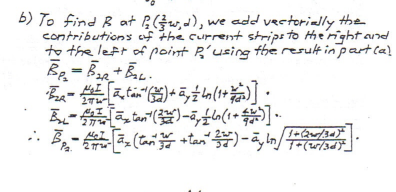 b) To find B̄ at P₂(⅔w, d), we add vectorially the
contributions of the current strips to the right and
to the left of point P₂' using the result in part (a).
B̄_P₂ = B̄_2R + B̄_2L.
B̄_2R = μ₀I/2πw [ā_x tan⁻¹(w/3d) + ā_y ½ ln(1 + w²/9d²)].
B̄_2L = μ₀I/2πw [ā_x tan⁻¹(2w/3d) - ā_y ½ ln(1 + 4w²/9d²)].
∴ B̄_P₂ = μ₀I/2πw [ā_x (tan⁻¹ w/3d + tan⁻¹ 2w/3d) - ā_y ln √(1+(2w/3d)²/1+(w/3d)²)].